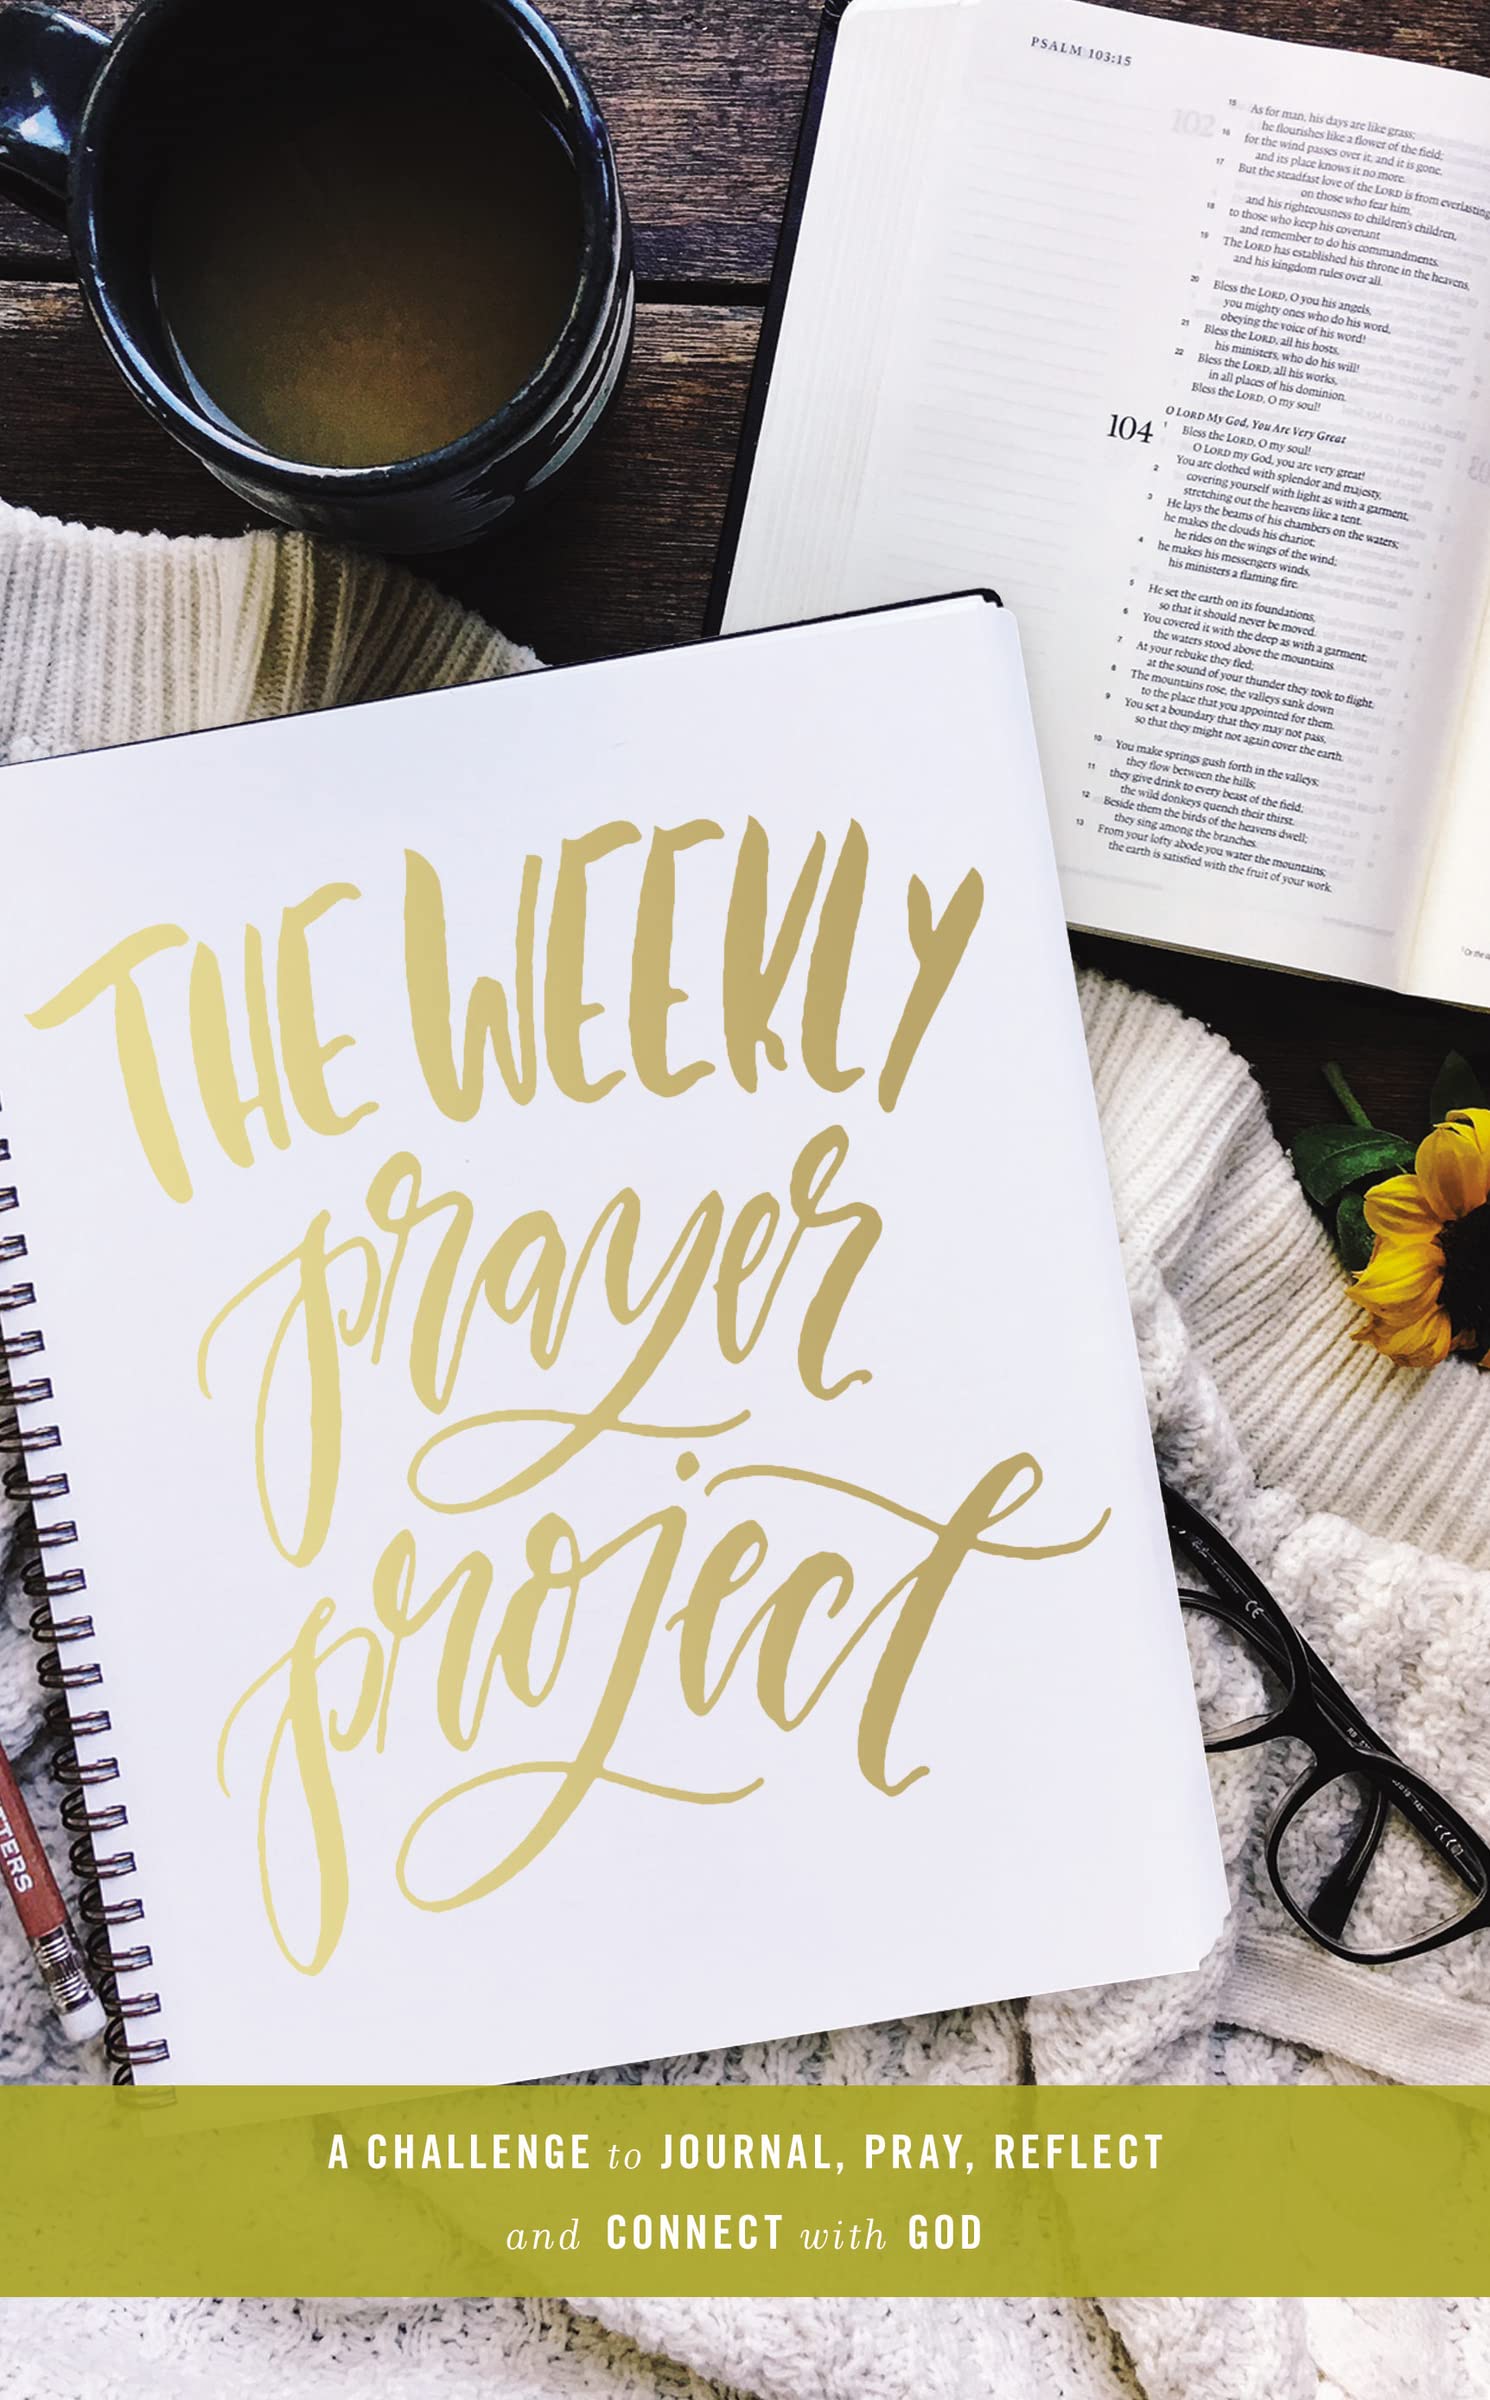 PSALM 103:15
102
15 As for man, his days are like grass;
he flourishes like a flower of the field;
16 for the wind passes over it, and it is gone,
and its place knows it no more.
17 But the steadfast love of the LORD is from everlasting
on those who fear him,
and his righteousness to children's children,
18 to those who keep his covenant
and remember to do his commandments.
19 The LORD has established his throne in the heavens,
and his kingdom rules over all.
20 Bless the LORD, O you his angels,
you mighty ones who do his word,
obeying the voice of his word!
21 Bless the LORD, all his hosts,
his ministers, who do his will!
22 Bless the LORD, all his works,
in all places of his dominion.
Bless the LORD, O my soul!
O LORD My God, You Are Very Great
104 1 Bless the LORD, O my soul!
O LORD my God, you are very great!
You are clothed with splendor and majesty,
2 covering yourself with light as with a garment,
stretching out the heavens like a tent.
3 He lays the beams of his chambers on the waters;
he makes the clouds his chariot;
he rides on the wings of the wind;
4 he makes his messengers winds,
his ministers a flaming fire.
5 He set the earth on its foundations,
so that it should never be moved.
6 You covered it with the deep as with a garment;
the waters stood above the mountains.
7 At your rebuke they fled;
at the sound of your thunder they took to flight.
8 The mountains rose, the valleys sank down
to the place that you appointed for them.
9 You set a boundary that they may not pass,
so that they might not again cover the earth.
10 You make springs gush forth in the valleys;
they flow between the hills;
11 they give drink to every beast of the field;
the wild donkeys quench their thirst.
12 Beside them the birds of the heavens dwell;
they sing among the branches.
13 From your lofty abode you water the mountains;
the earth is satisfied with the fruit of your work.
THE WEEKLY
prayer
project
TTERS
A CHALLENGE to JOURNAL, PRAY, REFLECT
and CONNECT with GOD